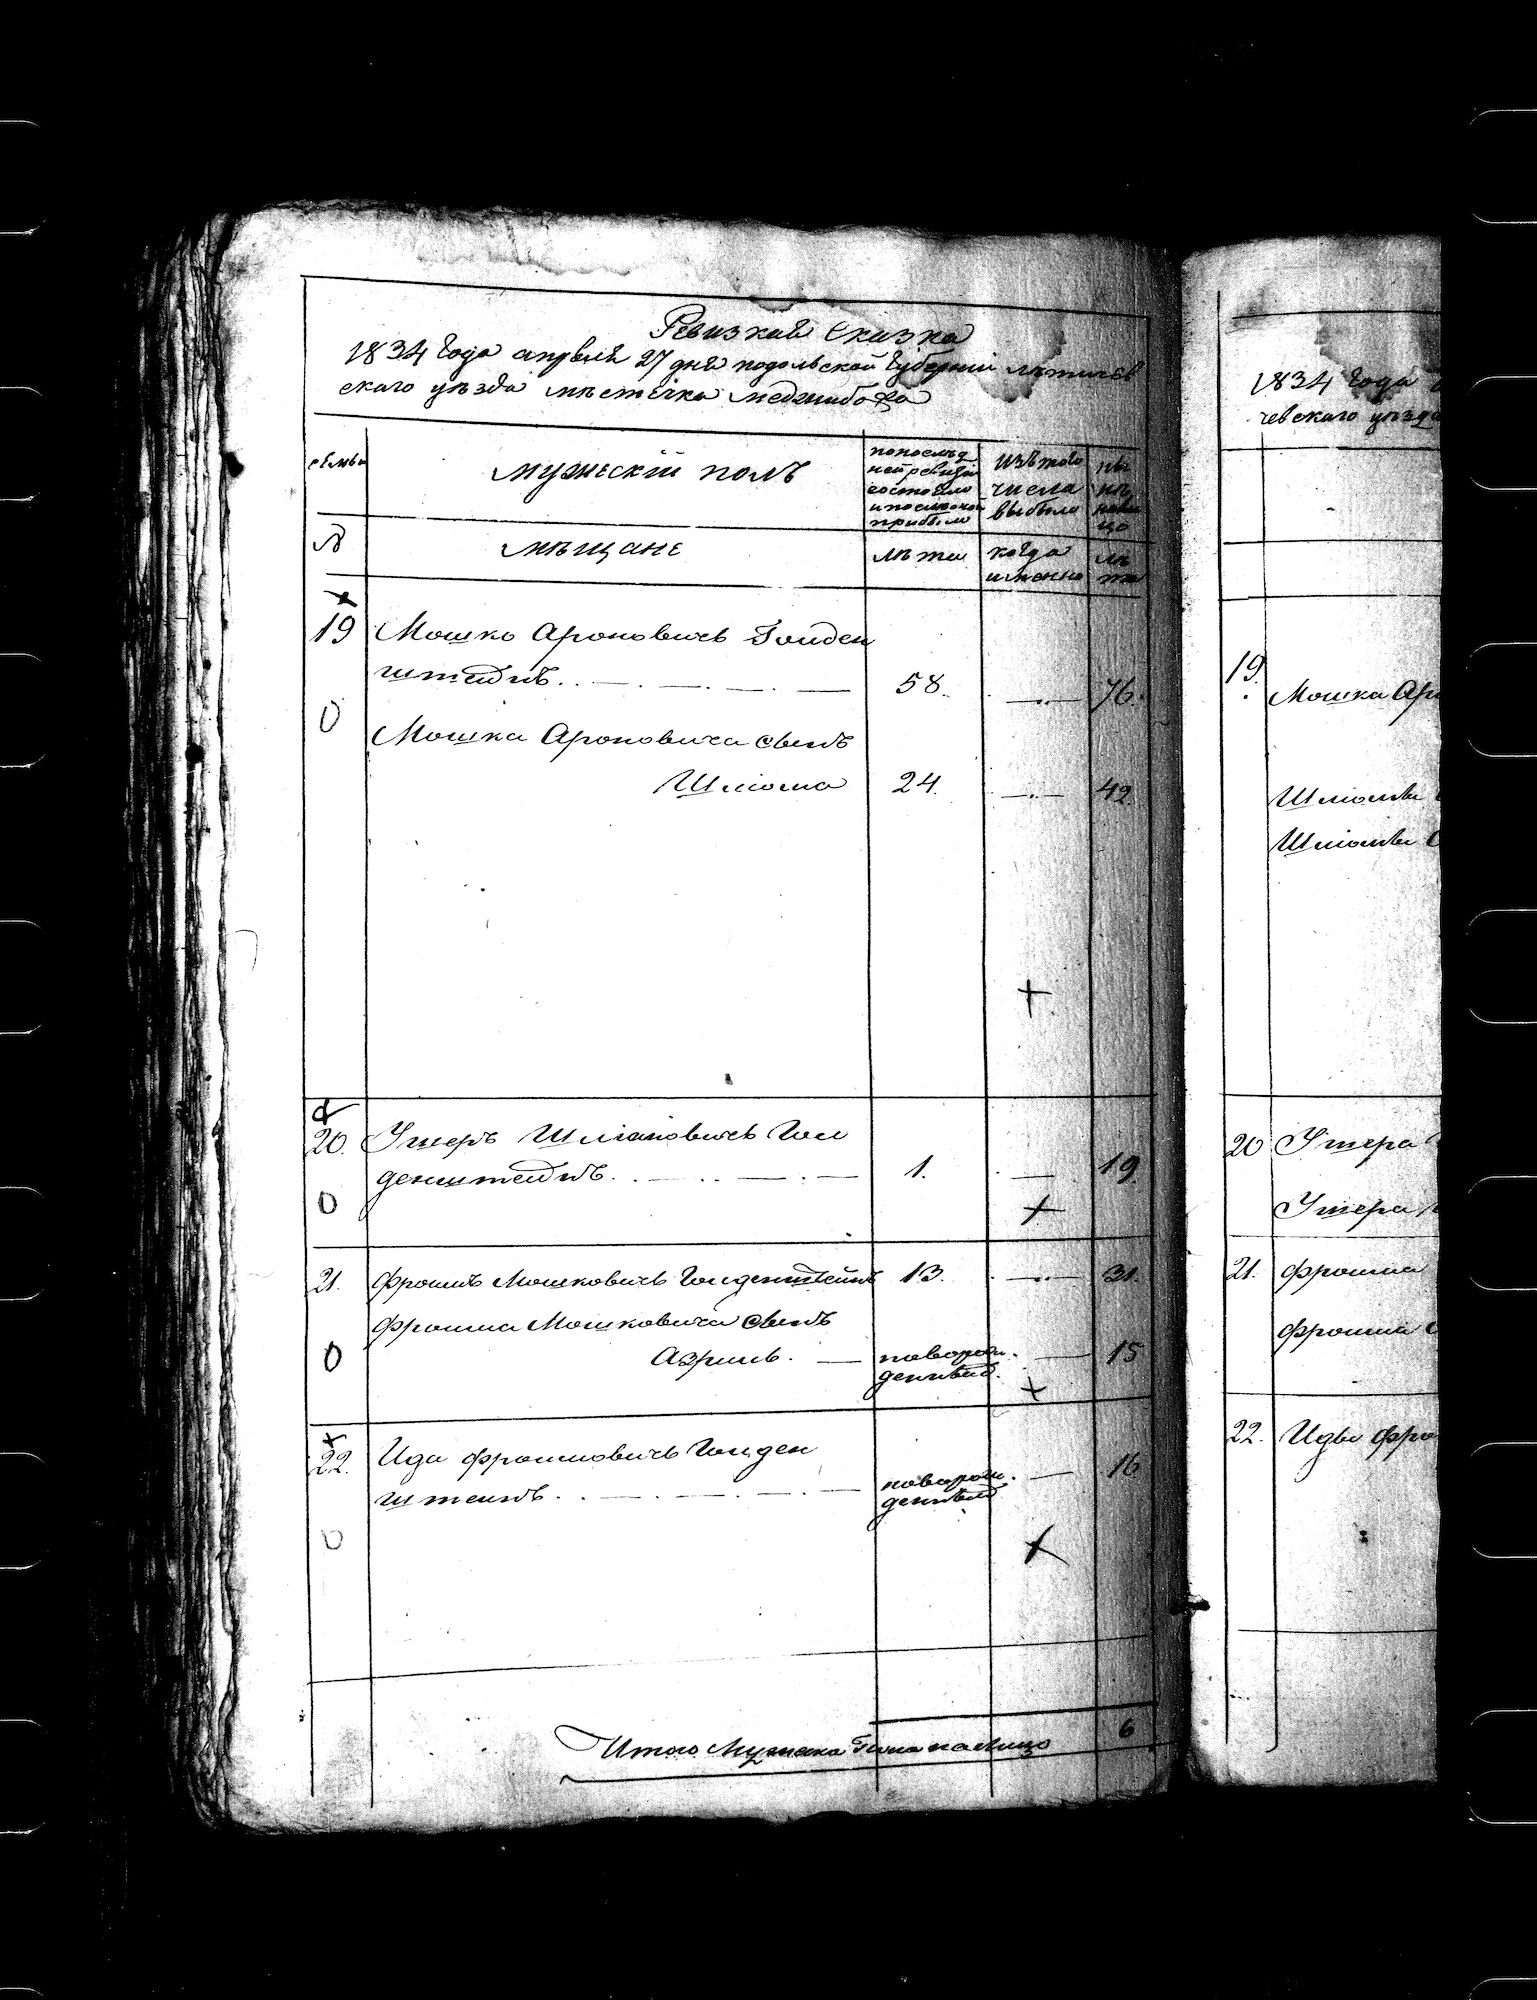 Ревизкая Сказка
1834 Года апреля 27 дня подольской Губернии летичев
скаго уезда местечка меджибожа
семьи
мужескій полъ
попослед
ней ревизіи
состояло
и после того
прибыло
изъ того
числа
выбыло
ны
не
нали
цо
№
мещане
лета
когда
именно
ле
та
19
Мошко Ароновичъ Голден
штейнъ
58.
76.
Мошка Ароновича сынъ
Шліома
24.
42.
20.
Утеръ Шліомовичъ Гол
денштейнъ
1.
19.
21.
Фроимъ Мошковичъ Голденштейнъ
13.
31.
Фроима Мошковича сынъ
Азриль.
новорож.
денный.
15
22.
Ида Фроимовичъ Голден
штейнъ
новорож.
денный
16
Итого Мужеска Пола на лицо
6
1834 Года
чевскаго уезда
19.
Мошка Аро
Шліомы
Шліомы
20
Утера
Утера
21.
Фроима
Фроима
22.
Иды Фро